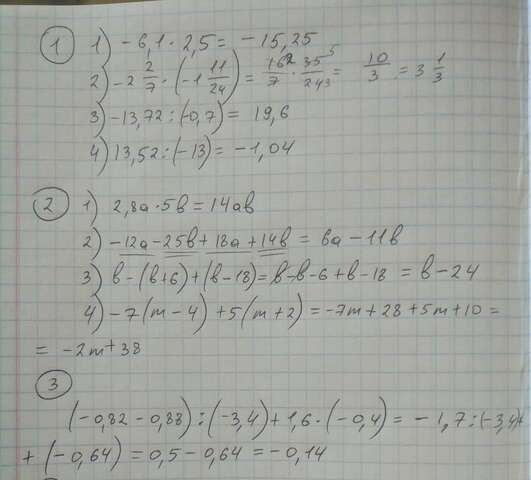 ① 1) -6,1 · 2,5 = -15,25
2) -2 2/7 · (-1 11/24) = 16²/7 · 35⁵/24₃ = 10/3 = 3 1/3
3) -13,72 : (-0,7) = 19,6
4) 13,52 : (-13) = -1,04
② 1) 2,8a · 5b = 14ab
2) -12a - 25b + 18a + 14b = 6a - 11b
3) b - (b+6) + (b-18) = b - b - 6 + b - 18 = b - 24
4) -7(m-4) + 5(m+2) = -7m + 28 + 5m + 10 =
= -2m + 38
③
(-0,82 - 0,88) : (-3,4) + 1,6 · (-0,4) = -1,7 : (-3,4) +
+ (-0,64) = 0,5 - 0,64 = -0,14